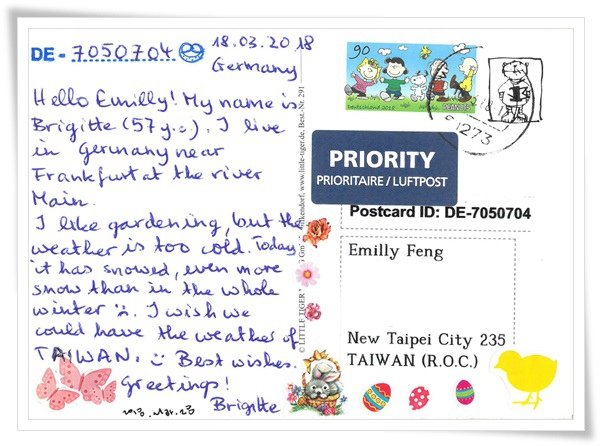 DE-7050704
18.03.2018
Germany
Hello Emilly! My name is
Brigitte (57 y.o.). I live
in Germany near
Frankfurt at the river
Main.
I like gardening, but the
weather is too cold. Today
it has snowed, even more
snow than in the whole
winter :(. I wish we
could have the weather of
TAIWAN. :) Best wishes.
Greetings!
Brigitte
© LITTLE TIGER
www.little-tiger.de, Best.-Nr. 291
90
Deutschland 2018
PEANUTS
61273
PRIORITY
PRIORITAIRE / LUFTPOST
Postcard ID: DE-7050704
Emilly Feng
New Taipei City 235
TAIWAN (R.O.C.)